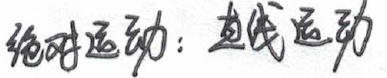 绝对运动：直线运动